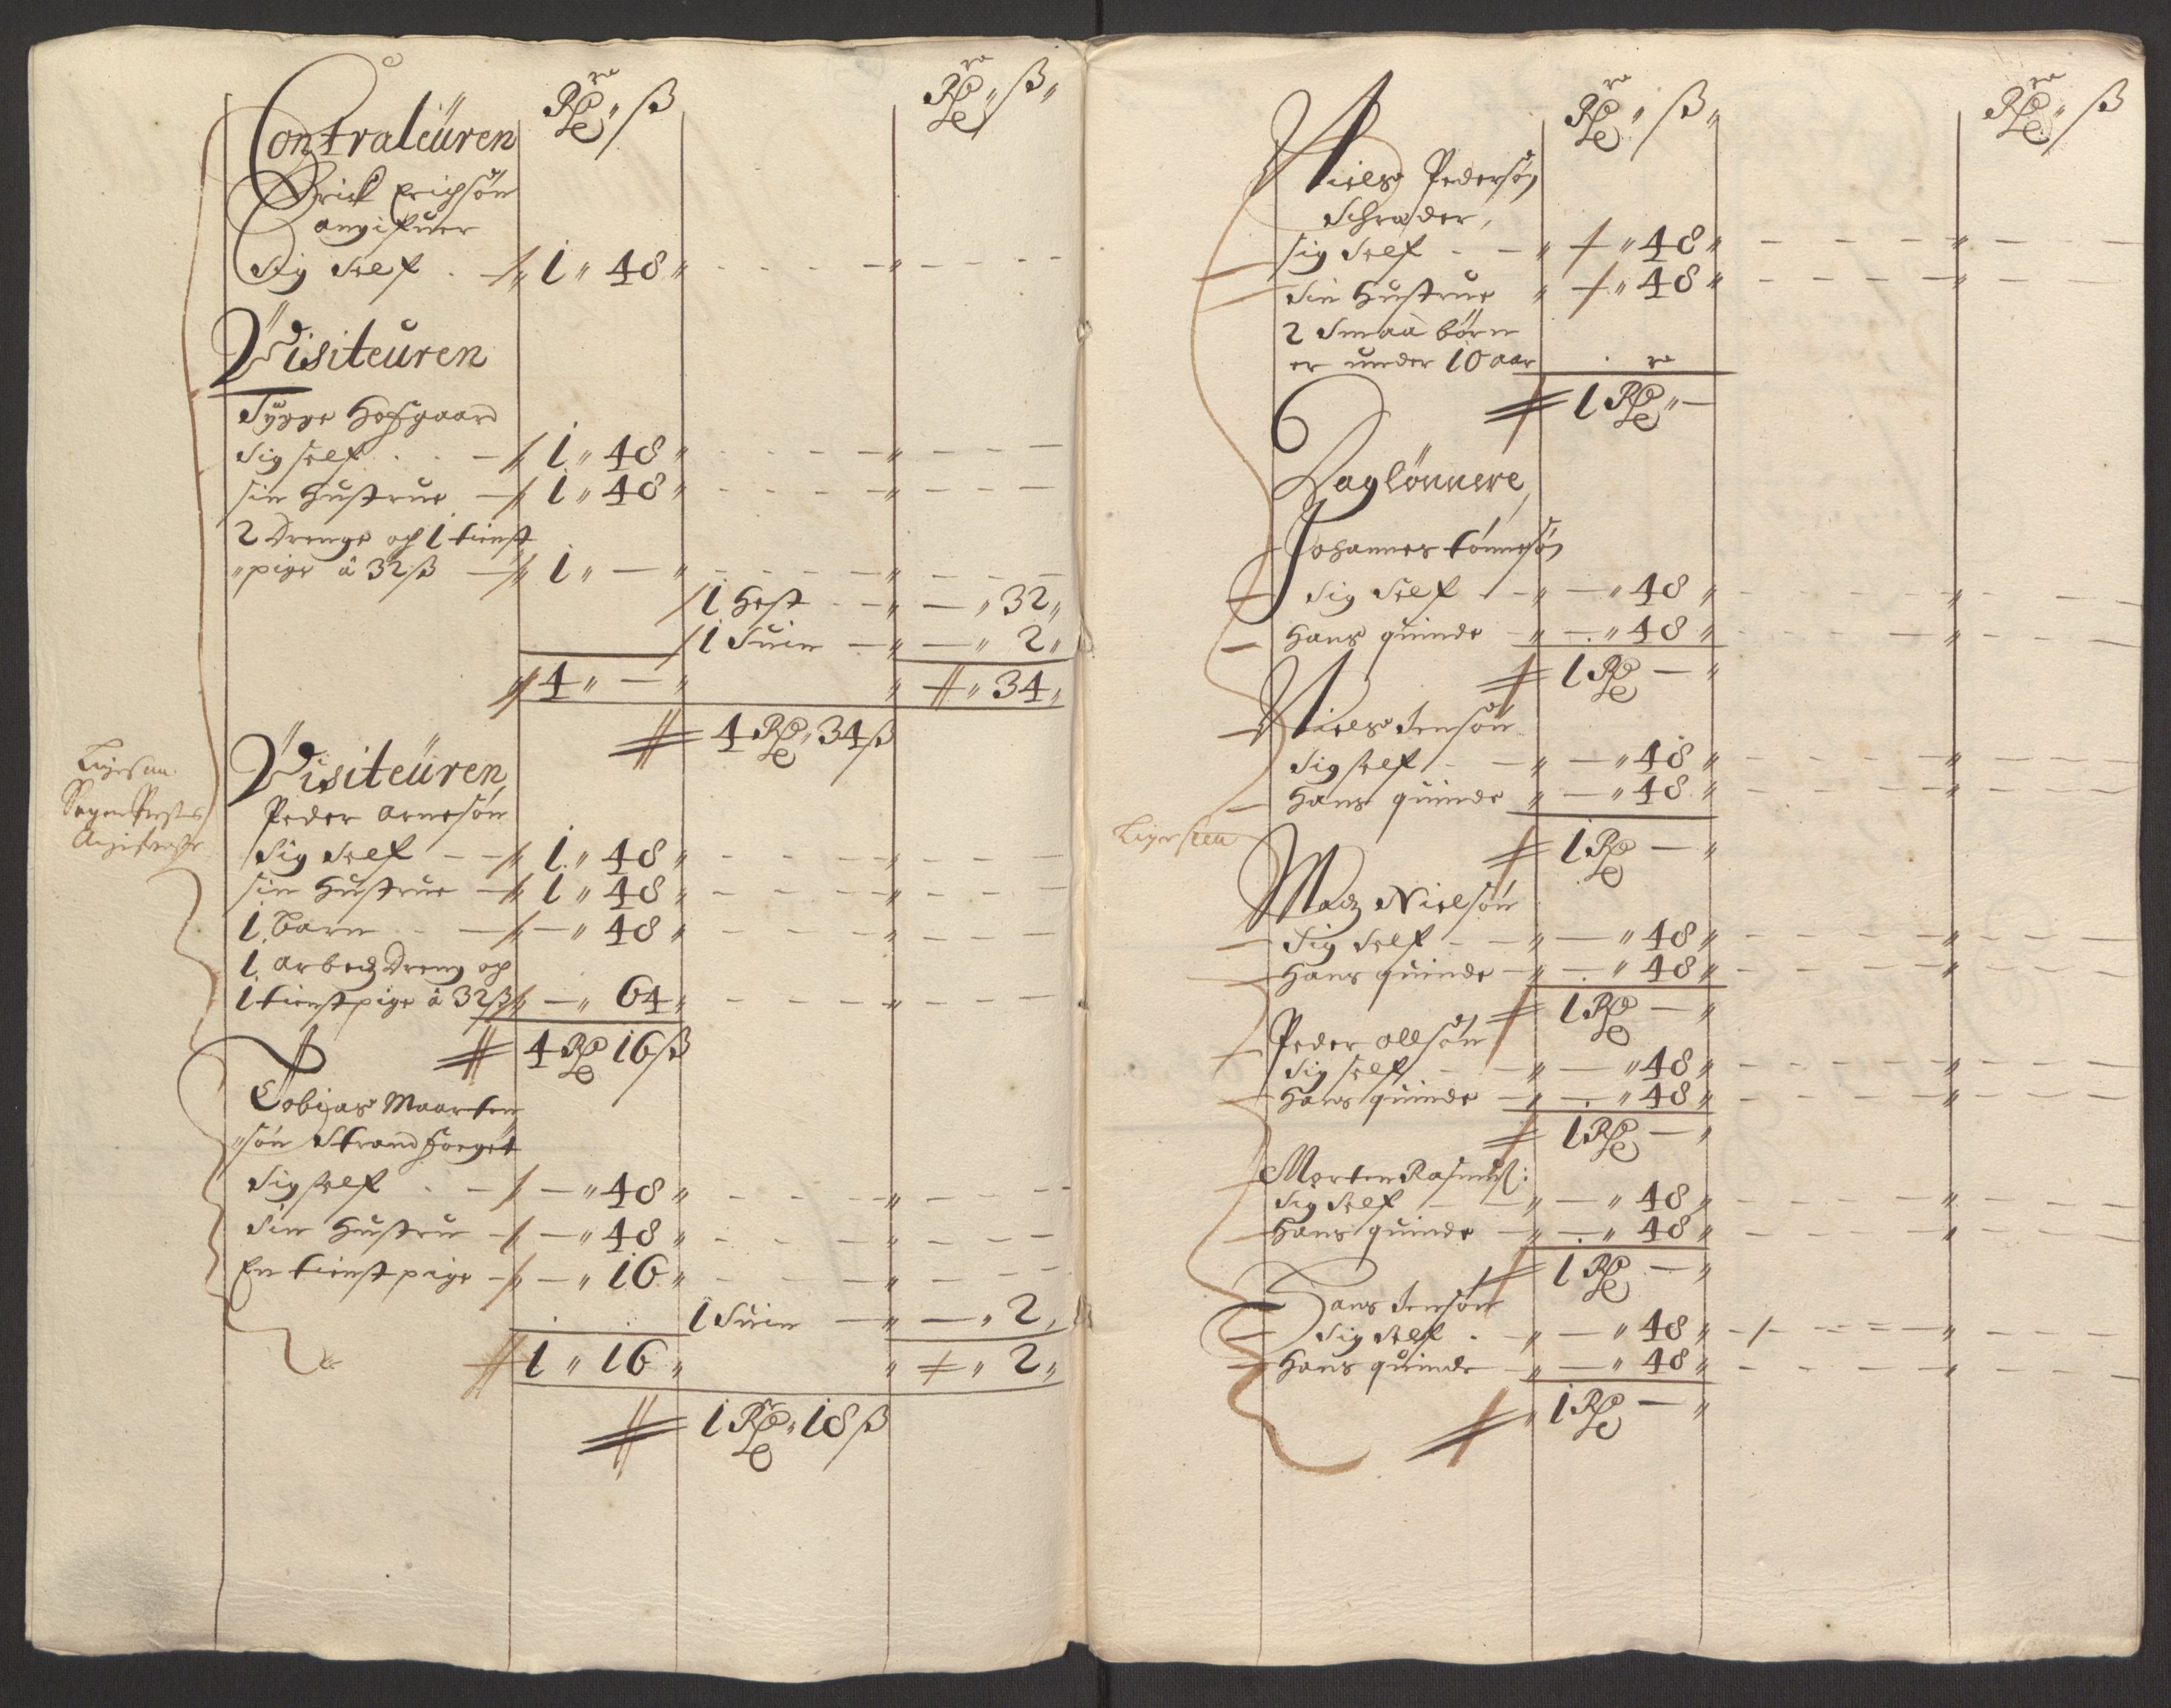 Rdr " ß
Rdr " ß "
Contraleüren
Erick Erichsøn
angifuer
Sig Self . - " 1 " 48 "
Visiteuren
Tygge Hofgaard
Sig self . . - " 1 " 48 "
sin Hustrue - " 1 " 48 "
2 Drenge och 1 tienst
"pige â 32 ß - " 1 " - "
1 Hest - " - " 32 "
1 Suin - " - " 2 "
" 4 " - " " - " 34 "
4 Rdr " 34 ß
Visiteüren
Peder Arnesøn
Sig Self - - 1 " 48 "
sin Hustrue - 1 " 48 "
1 Barn - - - " 48 "
1 arbeidz Dreng och
1 tienstpige â 32 ß - " 64 "
4 Rdr 16 ß
Tobias Maarten
"søn Strand
Sig self . - - " 48 "
Sin Hustru - - " 48 "
En tienst pige - - " 16 "
1 Suin - " - " 2 "
1 " 16 " " - " 2 "
1 Rdr " 18 ß
Rdr " ß "
Rdr " ß
Niels Pedersøn
Schrader,
sig Self - - " - " 48 "
Sin Hustrue " - " 48 "
2 Smaa børn
er under 10 aar
1 Rdr " -
Daglønnere
Johannes tønnesøn
Sig Self - - " - " 48 "
Hans quinde - " - " 48 "
1 Rdr - "
Niels Jensøn
Sig self - - " - " 48 "
Hans quinde " - " 48 "
1 Rdr - "
Madz Nielsøn
Sig Self - - " - " 48 "
Hans quinde - " - " 48 "
1 Rdr - "
Peder ollsøn
Sig self - - " - " 48 "
Hans quinde - " - " 48 "
1 Rdr - "
Morten Rasmuß:
Sig Self - - " - " 48 "
Hans quinde - " - " 48 "
1 Rdr - "
Hans Jensøn
Sig Self . - " - " 48 "
Hans quinde - " - " 48 "
" 1 Rdr - "